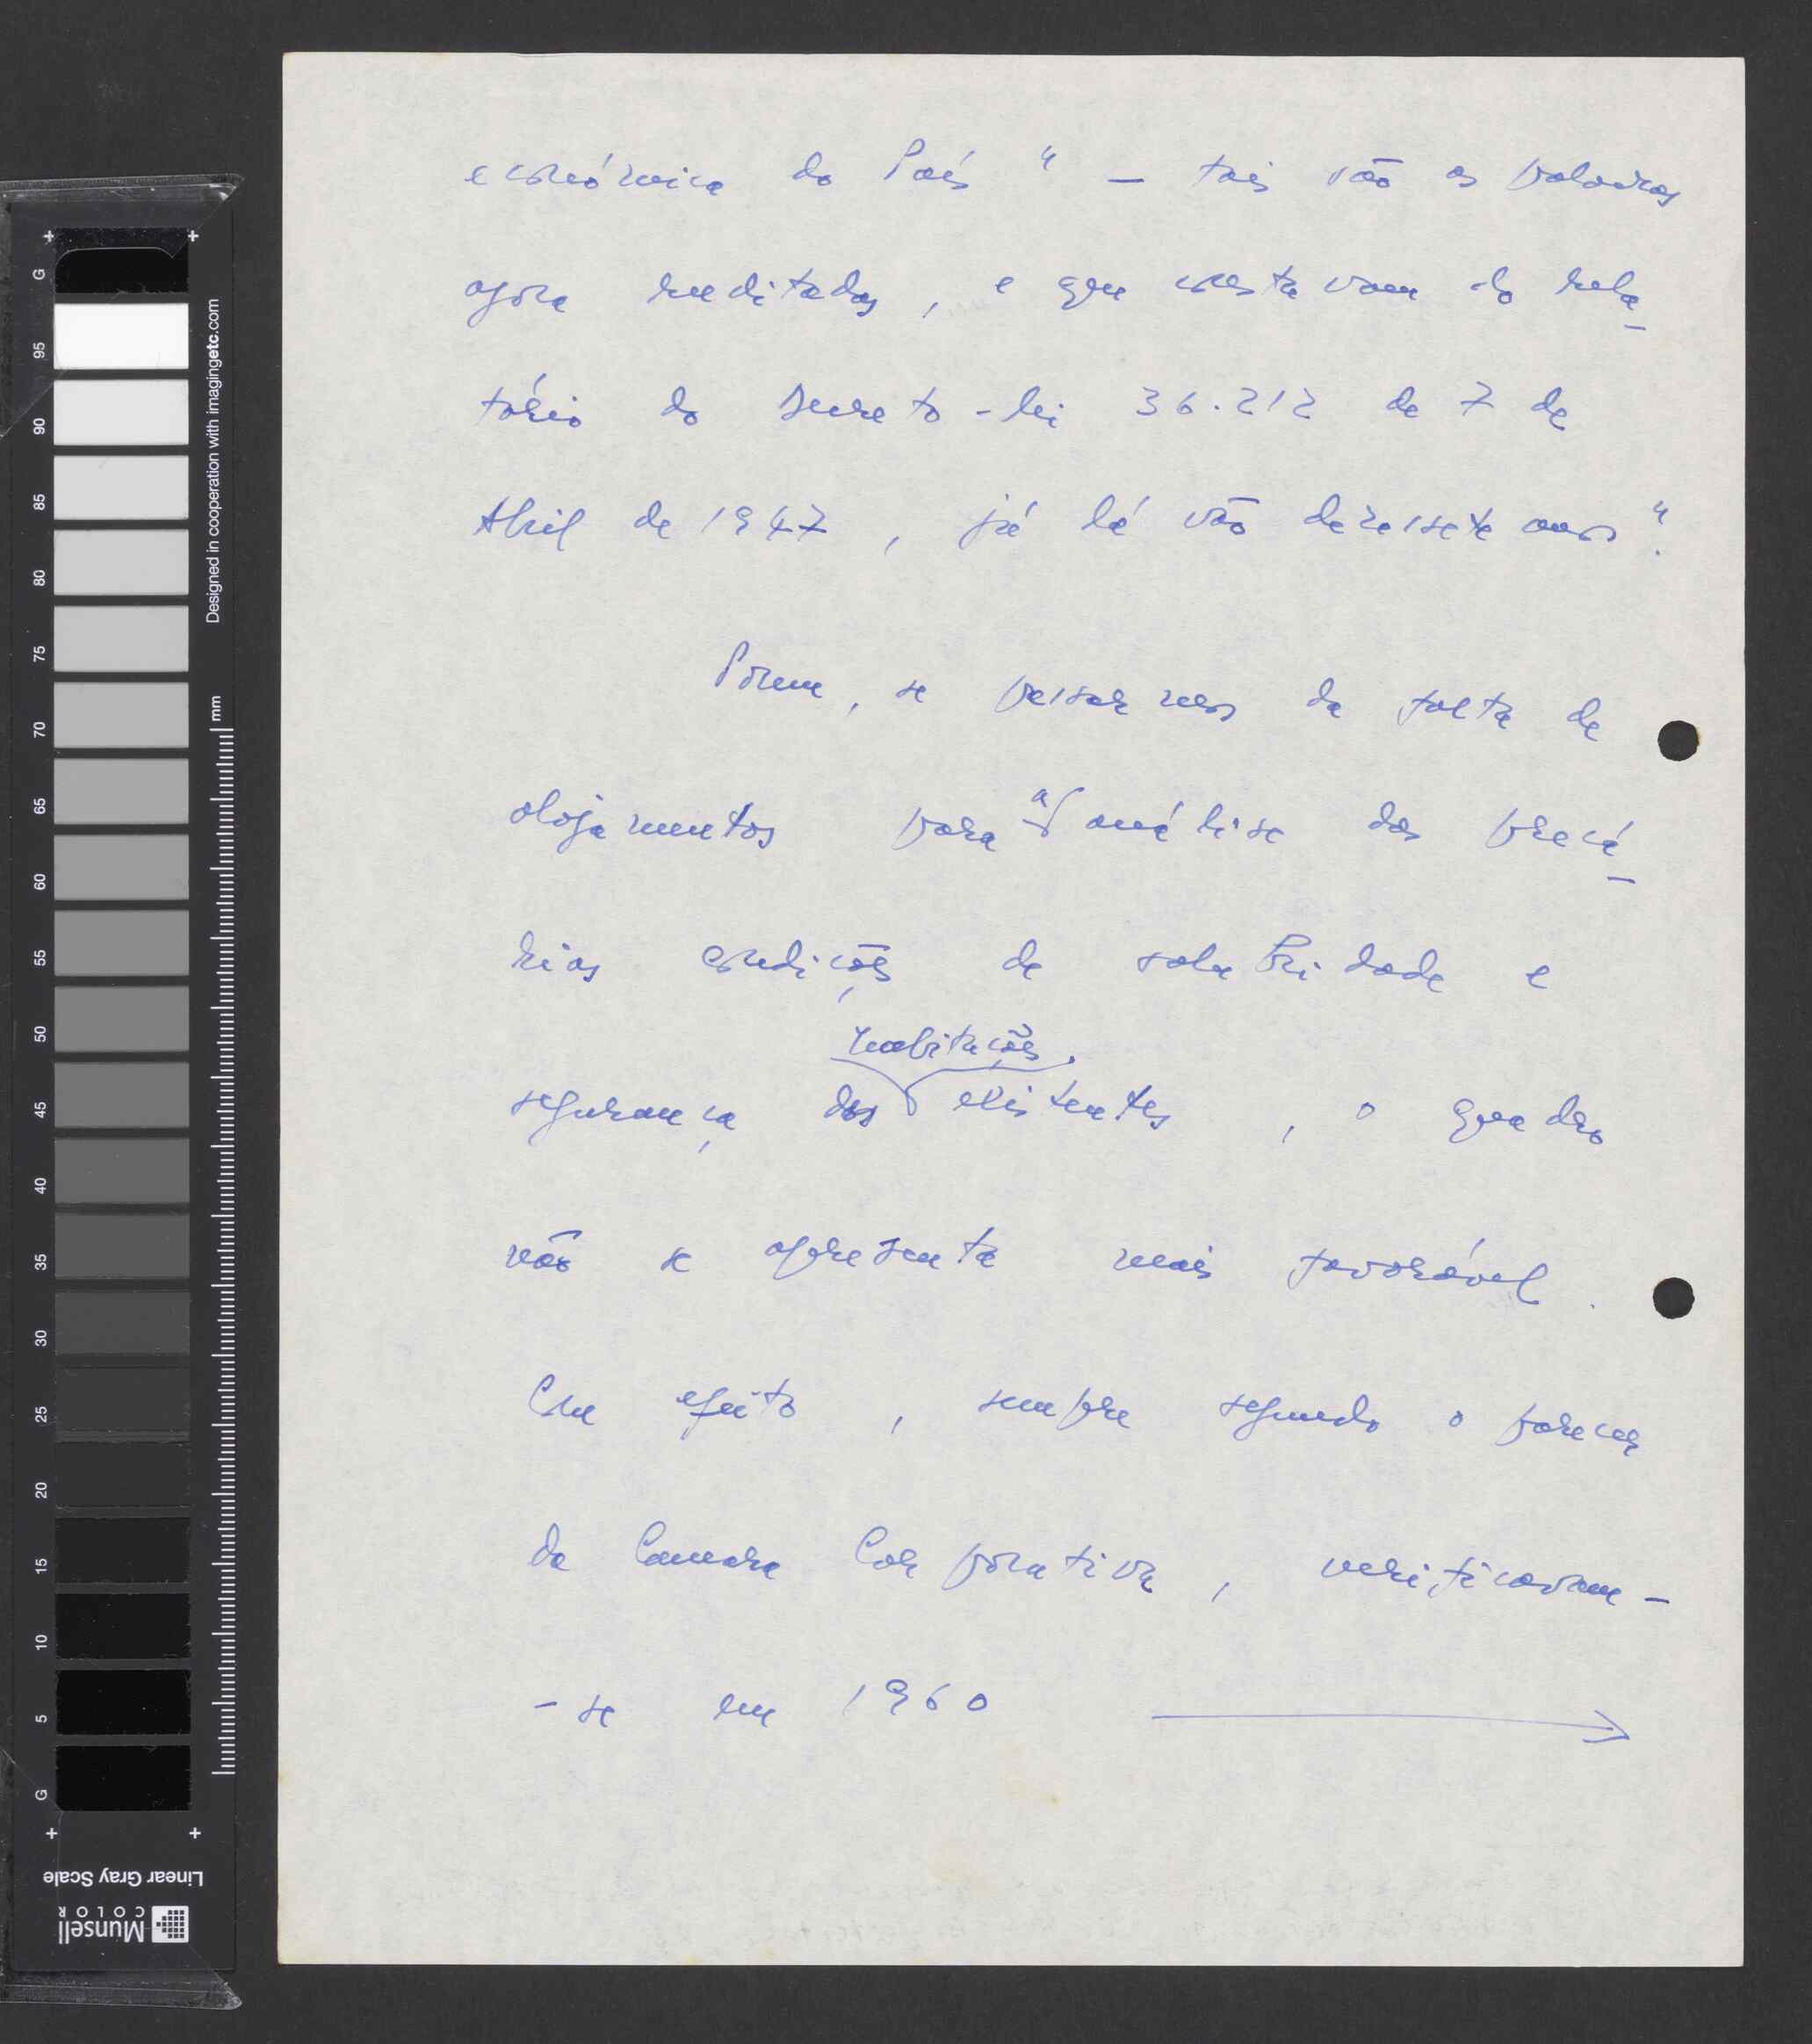 económica do País" — tais são as palavras
agora reeditadas, e que constavam do rela-
tório do Decreto-lei 36.212 de 7 de
Abril de 1947, já lá vão dezassete anos".
Porem, se passarmos da falta de
alojamentos para a análise das precá-
rias condições de salubridade e
habitações
segurança das existentes, o quadro
não se apresenta mais favorável.
Com efeito, sempre segundo o parecer
da Camara Corporativa, verificavam-
-se em 1960 →
G 95 90 85 80 75 70 65 60 55 50 45 40 35 30 25 20 15 10 5 G
Designed in cooperation with imagingetc.com
mm
Linear Gray Scale
Munsell
COLOR